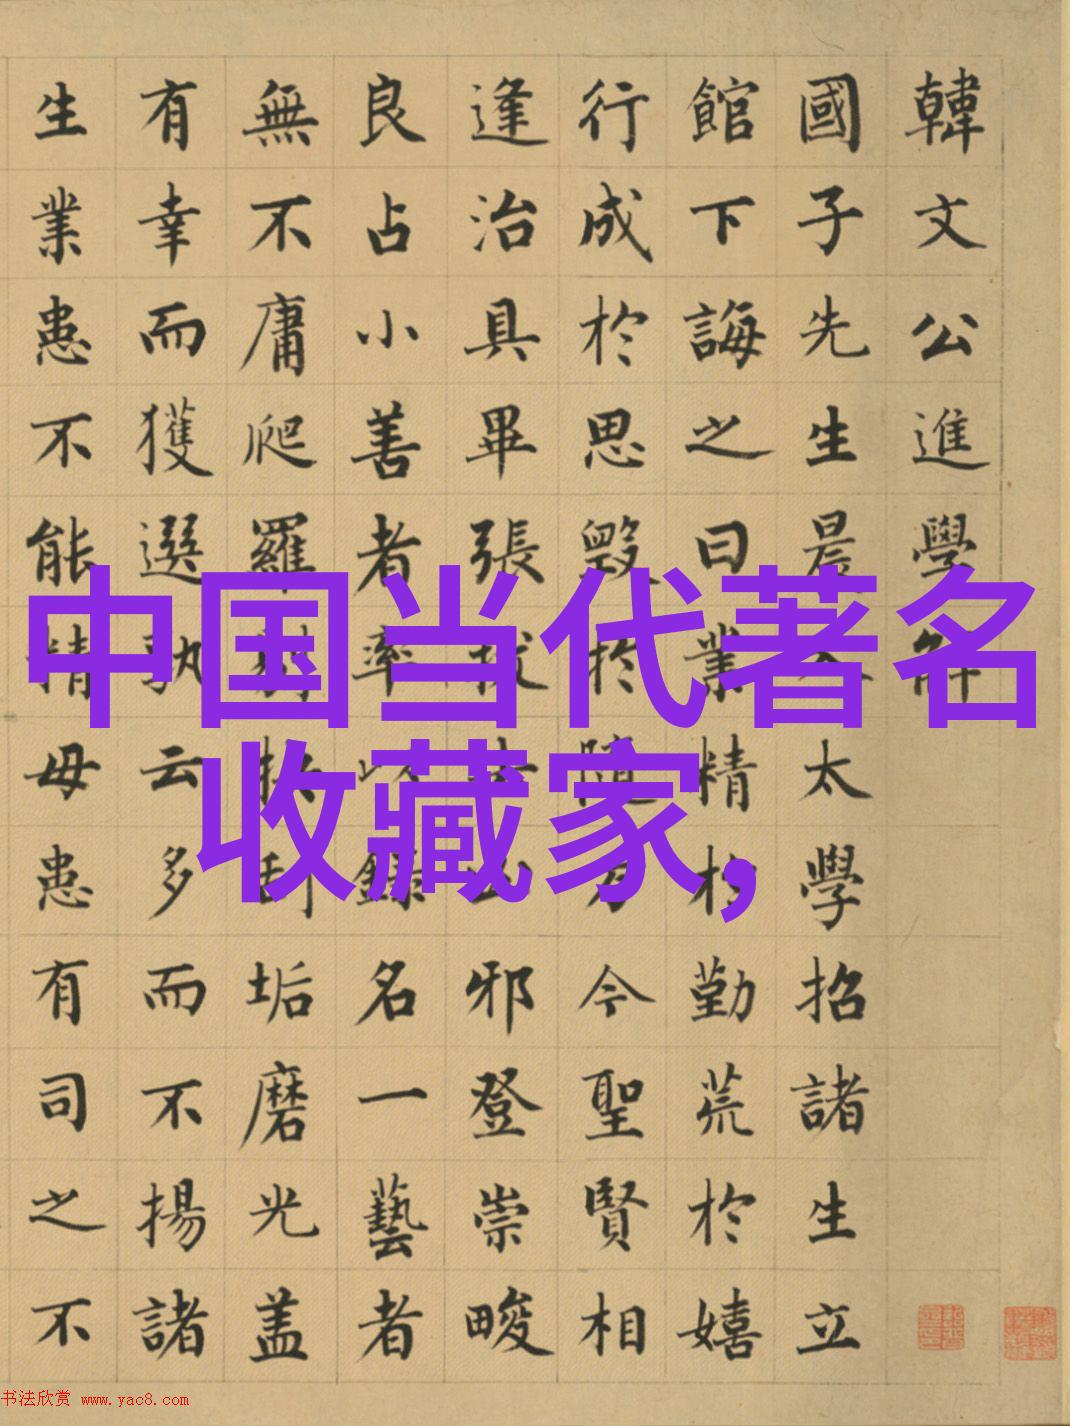 中国当代著名
收藏家,
韓文公進學解
國子先生晨入太學招諸生立
館下誨之曰業精於勤荒於嬉
行成於思毀於隨方今聖賢相
逢治具畢張拔去凶邪登崇畯
良占小善者率以錄名一藝者
無不庸爬羅剔抉刮垢磨光盖
有幸而獲選孰云多而不揚諸
生業患不能精毋患有司之不
书法欣赏 www.yac8.com